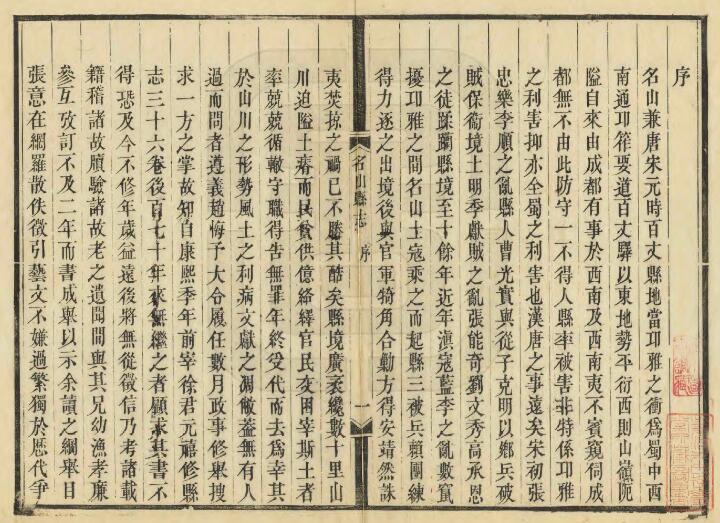 序
名山兼唐宋元時百丈縣地當邛雅之衝爲蜀中西
南通邛筰要道百丈驛以東地勢平衍西則山嶺阨
隘自來由成都有事於西南及西南夷不賓窺伺成
都無不由此防守一不得人縣率被害非特係邛雅
之利害抑亦全蜀之利害也漢唐之事遠矣宋初張
忠樂李順之亂縣人曹光實與從子克明以鄉兵破
賊保衞境土明季獻賊之亂張能奇劉文秀高承恩
之徒蹂躪縣境至十餘年近年滇寇藍李之亂數竄
擾邛雅之間名山土寇乘之而起縣三被兵賴團練
得力逐之出境後與官軍犄角合勦方得安靖然誅
名山縣志
序
一
夷焚掠之禍已不勝其酷矣縣境廣袤纔數十里山
川迫隘土瘠而民貧供億絡繹官民交困宰斯土者
率兢兢循轍守職得告無罪年終受代而去爲宰其
於山川之形勢風土之利病文獻之凋敝蓋無有人
過而問者遵義趙悔予大令履任數月政事修舉搜
求一方之掌故知自康熙季年前宰徐君元禧修縣
志三十六卷後百七十年來無繼之者顧求其書不
得恐及今不修年歲益遠後將無從徵信乃考諸載
籍稽諸故牘驗諸故老之遺聞與其兄幼漁孝廉
參互攷訂不及二年而書成舉以示余讀之綱舉目
張意在網羅散佚徵引藝文不嫌過繁獨於歷代爭